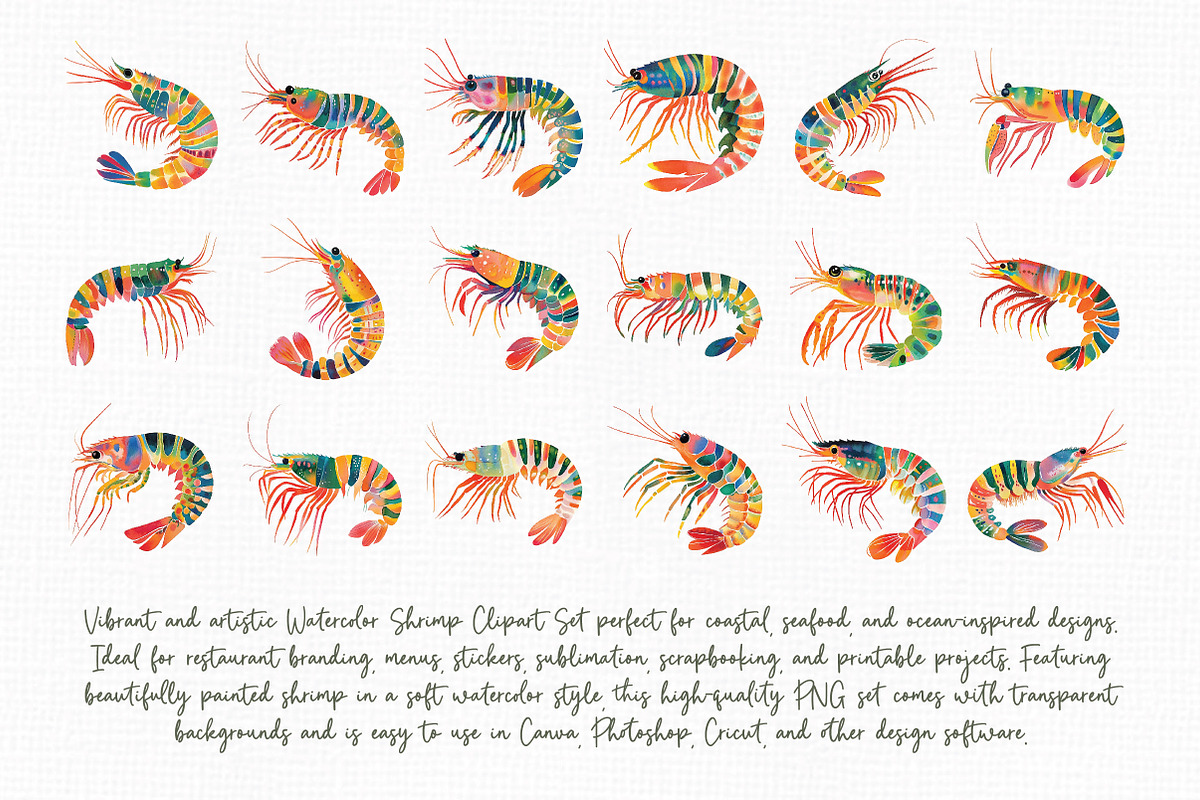 Vibrant and artistic Watercolor Shrimp Clipart Set perfect for coastal, seafood, and ocean-inspired designs.
Ideal for restaurant branding, menus, stickers, sublimation, scrapbooking, and printable projects. Featuring
beautifully painted shrimp in a soft watercolor style, this high-quality PNG set comes with transparent
backgrounds and is easy to use in Canva, Photoshop, Cricut, and other design software.